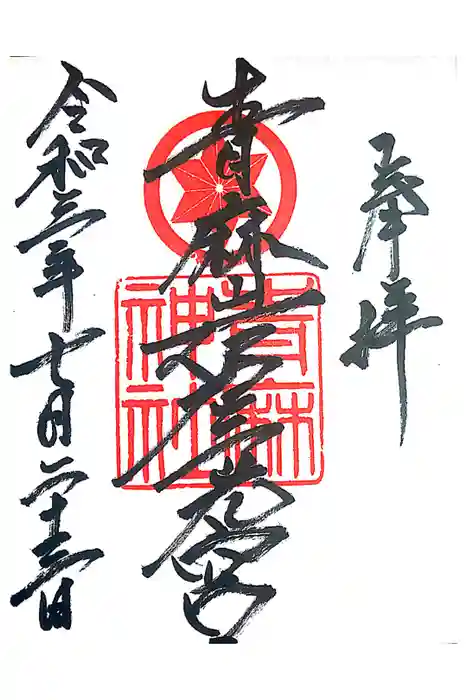 奉拝
青麻岩戸三光宮
青麻
神社
令和三年七月二十三日